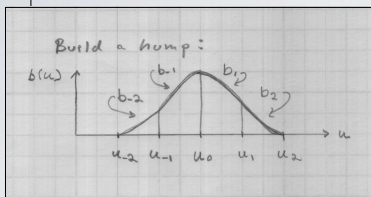 Build a hump:
b(u)
b-2 b-1 b1 b2
u-2 u-1 u0 u1 u2 u